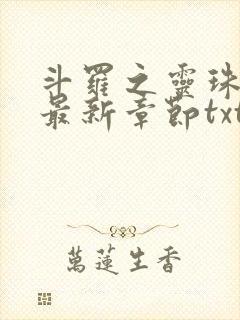 斗羅之靈珠
最新章節txt
萬蓮生香